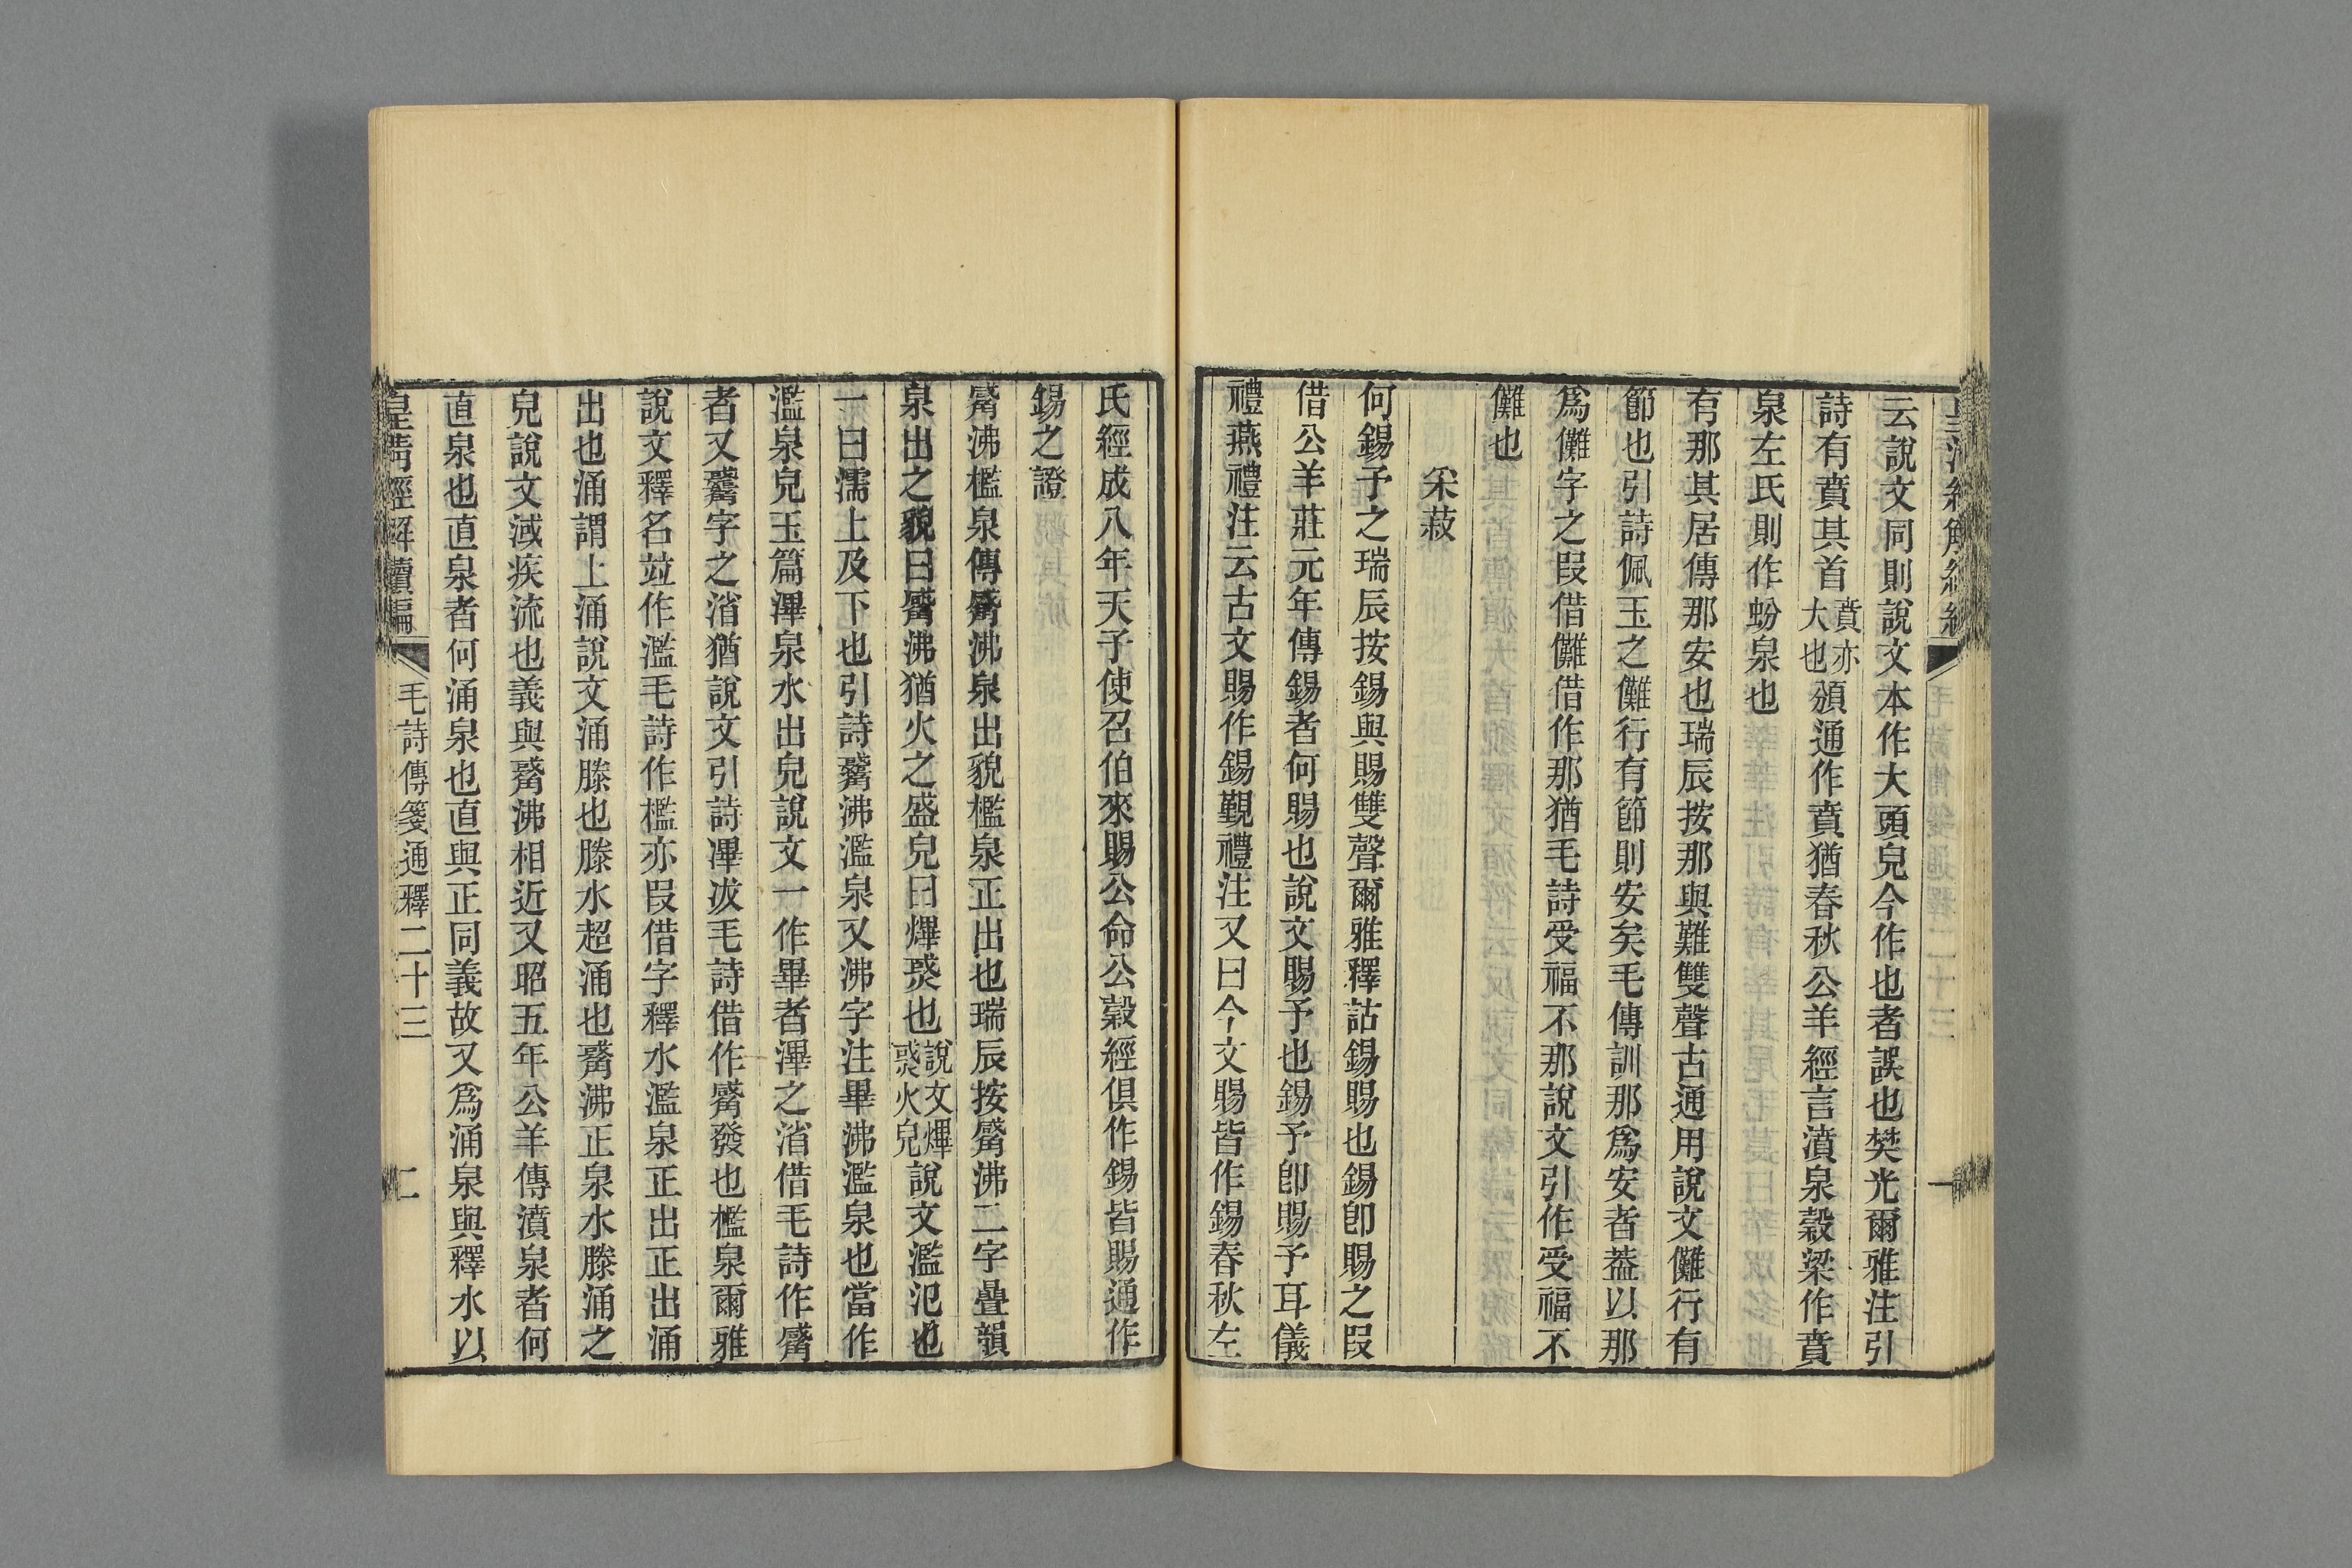 云說文同則說文本作大頭皃今作也者誤也樊光爾雅注引
詩有賁其首賁亦大也頒通作賁猶春秋公羊經言濆泉穀梁作賁
泉左氏則作蚡泉也
有那其居傳那安也瑞辰按那與難雙聲古通用說文儺行有
節也引詩佩玉之儺行有節則安矣毛傳訓那爲安者葢以那
爲儺字之叚借儺借作那猶毛詩受福不那說文引作受福不
儺也
采菽
何錫予之瑞辰按錫與賜雙聲爾雅釋詁錫賜也錫卽賜之叚
借公羊莊元年傳錫者何賜也說文賜予也錫予卽賜予耳儀
禮燕禮注云古文賜作錫覲禮注又曰今文賜皆作錫春秋左
氏經成八年天子使召伯來賜公命公穀經俱作錫皆賜通作
錫之證
觱沸檻泉傳觱沸泉出貌檻泉正出也瑞辰按觱沸二字疊韻
泉出之貌曰觱沸猶火之盛皃曰熚㷄也說文熚㷄火皃說文濫氾也
一曰濡上及下也引詩觱沸濫泉又沸字注畢沸濫泉也當作
濫泉皃玉篇滭泉水出皃說文一作畢者滭之渻借毛詩作觱
者又㓖字之渻猶說文引詩滭冹毛詩借作觱發也檻泉爾雅
說文釋名竝作濫毛詩作檻亦叚借字釋水濫泉正出正出涌
出也涌謂上涌說文涌滕也滕水超涌也觱沸正泉水滕涌之
皃說文淢疾流也義與觱沸相近又昭五年公羊傳濆泉者何
直泉也直泉者何涌泉也直與正同義故又爲涌泉與釋水以
皇清經解續編 毛詩傳箋通釋二十三 二